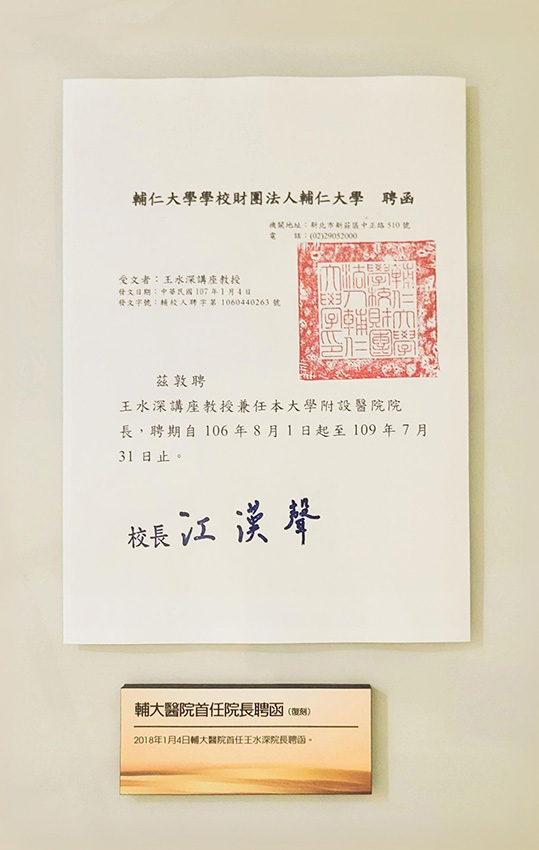 輔仁大學學校財團法人輔仁大學　聘函
機關地址：新北市新莊區中正路510號
電　　話：(02)29052000
受文者：王水深講座教授
發文日期：中華民國107年1月4日
發文字號：輔校人聘字第1060440263號
輔仁大學
學校財團
法人輔仁
大學印
茲敦聘
王水深講座教授兼任本大學附設醫院院
長，聘期自106年8月1日起至109年7月
31日止。
校長 江漢聲
輔大醫院首任院長聘函（復刻）
2018年1月4日輔大醫院首任王水深院長聘函。